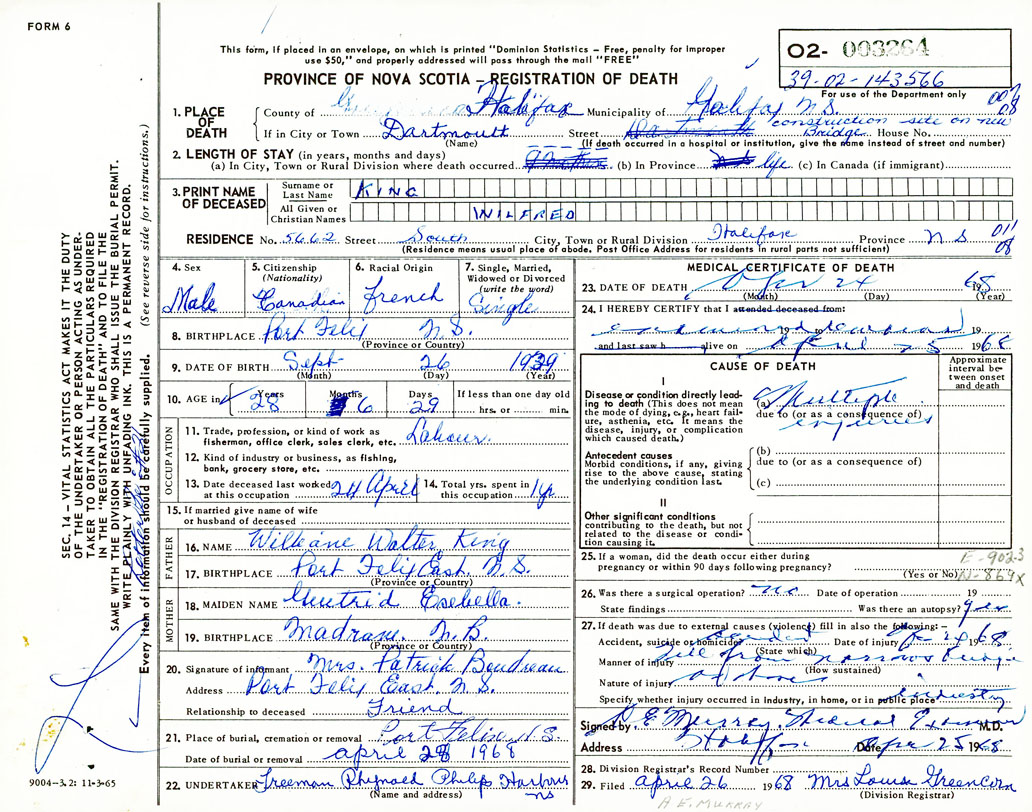 FORM 6
This form, if placed in an envelope, on which is printed "Dominion Statistics — Free, penalty for improper
use $50," and properly addressed will pass through the mail "FREE"
PROVINCE OF NOVA SCOTIA — REGISTRATION OF DEATH
O2- 003264
39-02-143566
For use of the Department only
1. PLACE OF DEATH
County of Halifax Municipality of Halifax N.S.
If in City or Town Dartmouth Street construction site on new Bridge House No.
(Name) (If death occurred in a hospital or institution, give the name instead of street and number)
2. LENGTH OF STAY (in years, months and days)
(a) In City, Town or Rural Division where death occurred (b) In Province life (c) In Canada (if immigrant)
3. PRINT NAME OF DECEASED
Surname or Last Name KING
All Given or Christian Names WILFRED
RESIDENCE No. 5662 Street South City, Town or Rural Division Halifax Province N S
(Residence means usual place of abode. Post Office Address for residents in rural parts not sufficient)
4. Sex Male
5. Citizenship (Nationality) Canadian
6. Racial Origin French
7. Single, Married, Widowed or Divorced (write the word) Single
8. BIRTHPLACE Port Felix N.S.
(Province or Country)
9. DATE OF BIRTH Sept 26 1939
(Month) (Day) (Year)
10. AGE in Years 28 Months 6 Days 29 If less than one day old hrs. or min.
OCCUPATION
11. Trade, profession, or kind of work as fisherman, office clerk, sales clerk, etc. Labour.
12. Kind of industry or business, as fishing, bank, grocery store, etc.
13. Date deceased last worked at this occupation 24 April
14. Total yrs. spent in this occupation 1 yr
15. If married give name of wife or husband of deceased
FATHER
16. NAME Walter King
17. BIRTHPLACE Port Felix East N.S.
(Province or Country)
MOTHER
18. MAIDEN NAME
19. BIRTHPLACE N.B.
(Province or Country)
20. Signature of informant Mrs. Patrick Boudreau
Address Port Felix East. N.S.
Relationship to deceased Friend
21. Place of burial, cremation or removal Port Felix N S
Date of burial or removal april 28 1968
22. UNDERTAKER Freeman Philip Harbour NS
(Name and address)
MEDICAL CERTIFICATE OF DEATH
23. DATE OF DEATH Apr 24 1968
(Month) (Day) (Year)
24. I HEREBY CERTIFY that I attended deceased from:
19
and last saw h alive on April 25 1968
CAUSE OF DEATH
Approximate interval between onset and death
I
Disease or condition directly leading to death (This does not mean the mode of dying, e.g., heart failure, asthenia, etc. It means the disease, injury, or complication which caused death.)
(a) Multiple
due to (or as a consequence of)
injuries
Antecedent causes
Morbid conditions, if any, giving rise to the above cause, stating the underlying condition last.
(b)
due to (or as a consequence of)
(c)
II
Other significant conditions
contributing to the death, but not related to the disease or condition causing it.
25. If a woman, did the death occur either during pregnancy or within 90 days following pregnancy?
(Yes or No)
E-9023
N-869X
26. Was there a surgical operation? no Date of operation 19
State findings Was there an autopsy? yes
27. If death was due to external causes (violence) fill in also the following:—
Accident, suicide or homicide? accident Date of injury Apr 24 1968
(State which)
Manner of injury fell from narrows bridge
(How sustained)
Nature of injury as above
Specify whether injury occurred in Industry, in home, or in public place industry
Signed by A E Murray, Medical Examiner M.D.
Address Halifax Date Apr 25 1968
28. Division Registrar's Record Number
29. Filed april 26 1968 Mrs Louise Greencorn
(Division Registrar)
A. E. MURRAY
SEC. 14 – VITAL STATISTICS ACT MAKES IT THE DUTY
OF THE UNDERTAKER OR PERSON ACTING AS UNDER-
TAKER TO OBTAIN ALL THE PARTICULARS REQUIRED
IN THE "REGISTRATION OF DEATH" AND TO FILE THE
SAME WITH THE DIVISION REGISTRAR WHO SHALL ISSUE THE BURIAL PERMIT.
WRITE PLAINLY WITH UNFADING INK. THIS IS A PERMANENT RECORD.
Every item of information should be carefully supplied. (See reverse side for instructions.)
9004–3.2: 11-3-65